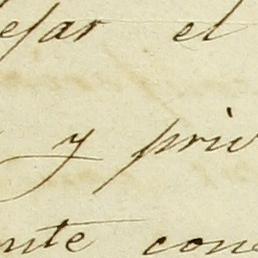 esar el
y priv
nte cone